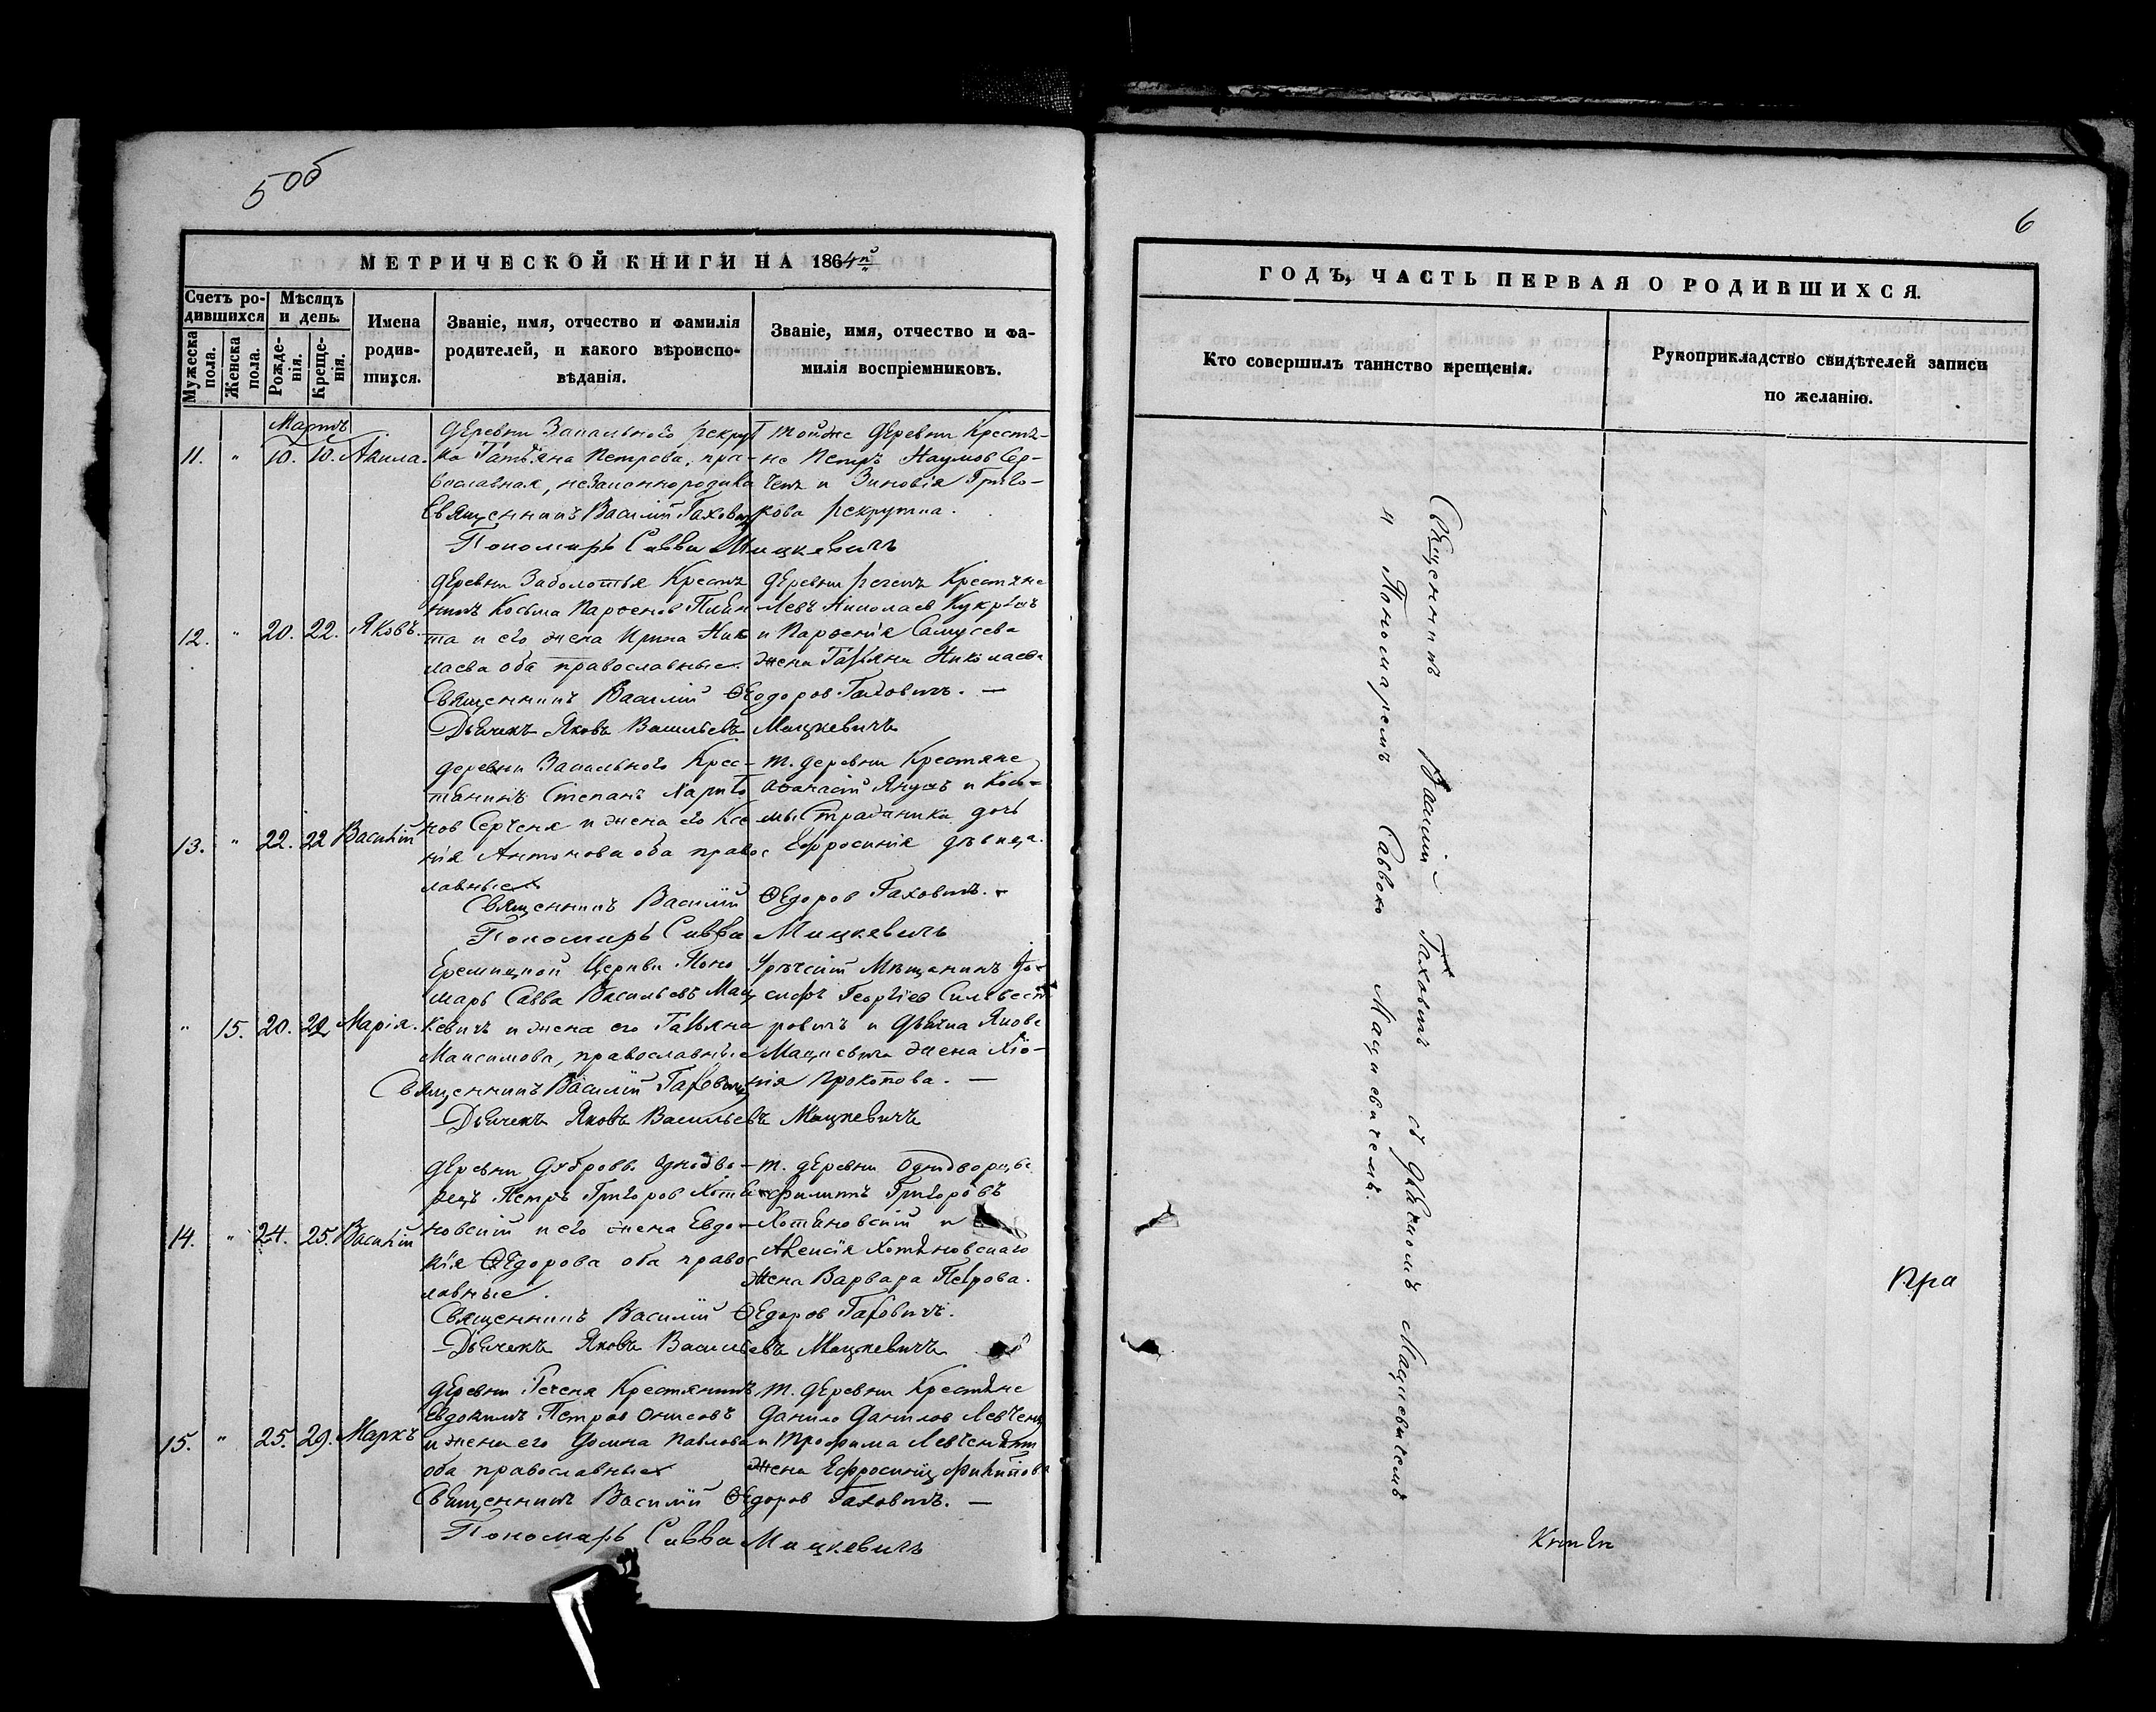 5 об
МЕТРИЧЕСКОЙ КНИГИ НА 1864й
Счетъ родившихся
Мужеска пола.
Женска пола.
Мѣсяцъ и день.
Рожденія.
Крещенія.
Имена родившихся.
Званіе, имя, отчество и фамилія
родителей, и какого вѣроиспо-
вѣданія.
Званіе, имя, отчество и фа-
милія воспріемниковъ.
Мартъ
11. " 10. 10. Акила.
деревни Запального рекрут
ка Татьяна Петрова, пра-
вославная, незаконнородила
тойже деревни Крестя-
не Петръ Наумов Сер-
ченя и Зиновія Григо-
рова рекрутка.
Священникъ Василій Гаховичъ
Пономарь Савва Мицкевичъ
12. " 20. 22. Яковъ.
деревни Заболотья Крестя
нинъ Косьма Парѳенов
та и его жена Ирина Нико
лаева оба православные.
деревни Речень Крестяне
Левъ Николаев
и Парѳенія Самусева
жена Татьяна Николаева
Священникъ Василій Ѳеодоров Гаховичъ. —
Дьячекъ Яковъ Васильевъ Мацкевичъ
13. " 22. 22 Василій
деревни Запального Крес-
тянинъ Степанъ Харито
нов Серченя и жена его Ксе
нія Антонова оба правос
лавные
т. деревни Крестяне
Аѳанасій Янущъ и Кось-
мы Страданика дочь
Ефросинія дѣвица.
Священникъ Василій Ѳедоров Гаховичъ.
Пономарь Савва Мицкевичъ
" 15. 20. 22 Марія.
Еремицкой Церкви Поно
марь Савва Васильевъ Мац
кевичъ и жена его Татьяна
Максимова, православные
Урѣчскій Мѣщанинъ Іо-
сифъ Георгіев Сильвест
ровичъ и Дьячка Якова
Мацкевича жена Хіо-
нія Прокопова. —
Священникъ Василій Гаховичъ
Дьячекъ Яковъ Васильевъ Мацкевичъ
14. " 24. 25. Василій
деревни Дубровы Однодво-
рецъ Петръ Григоров Хотя
новскій и его жена Евдо-
кія Ѳедорова оба правос
лавные.
т. деревни Однодворцы
Филипъ Григоровъ
Хотяновскій и
Алексія Хотяновскаго
жена Варвара Петрова.
Священникъ Василій Ѳедоров Гаховичъ.
Дьячекъ Яковъ Васильевъ Мацкевичъ
15. " 25. 29. Маркъ
деревни Реченя Крестянинъ
Евдокимъ Петров Онисовъ
и жена его Домна Павлова
оба православные
т. деревни Крестяне
Данило Данилов Левчен
и Трофима Левченят
жена Ефросинія Филипова
Священникъ Василій Ѳедоров Гаховичъ. —
Пономарь Савва Мицкевичъ
6
ГОДЪ, ЧАСТЬ ПЕРВАЯ О РОДИВШИХСЯ.
Кто совершилъ таинство крещенія.
Рукоприкладство свидѣтелей записи
по желанію.
Священникъ Василій Гаховичъ съ Дьячкомъ Мацкевичемъ
и Пономаремъ Саввою Мацкевичемъ.
Пра